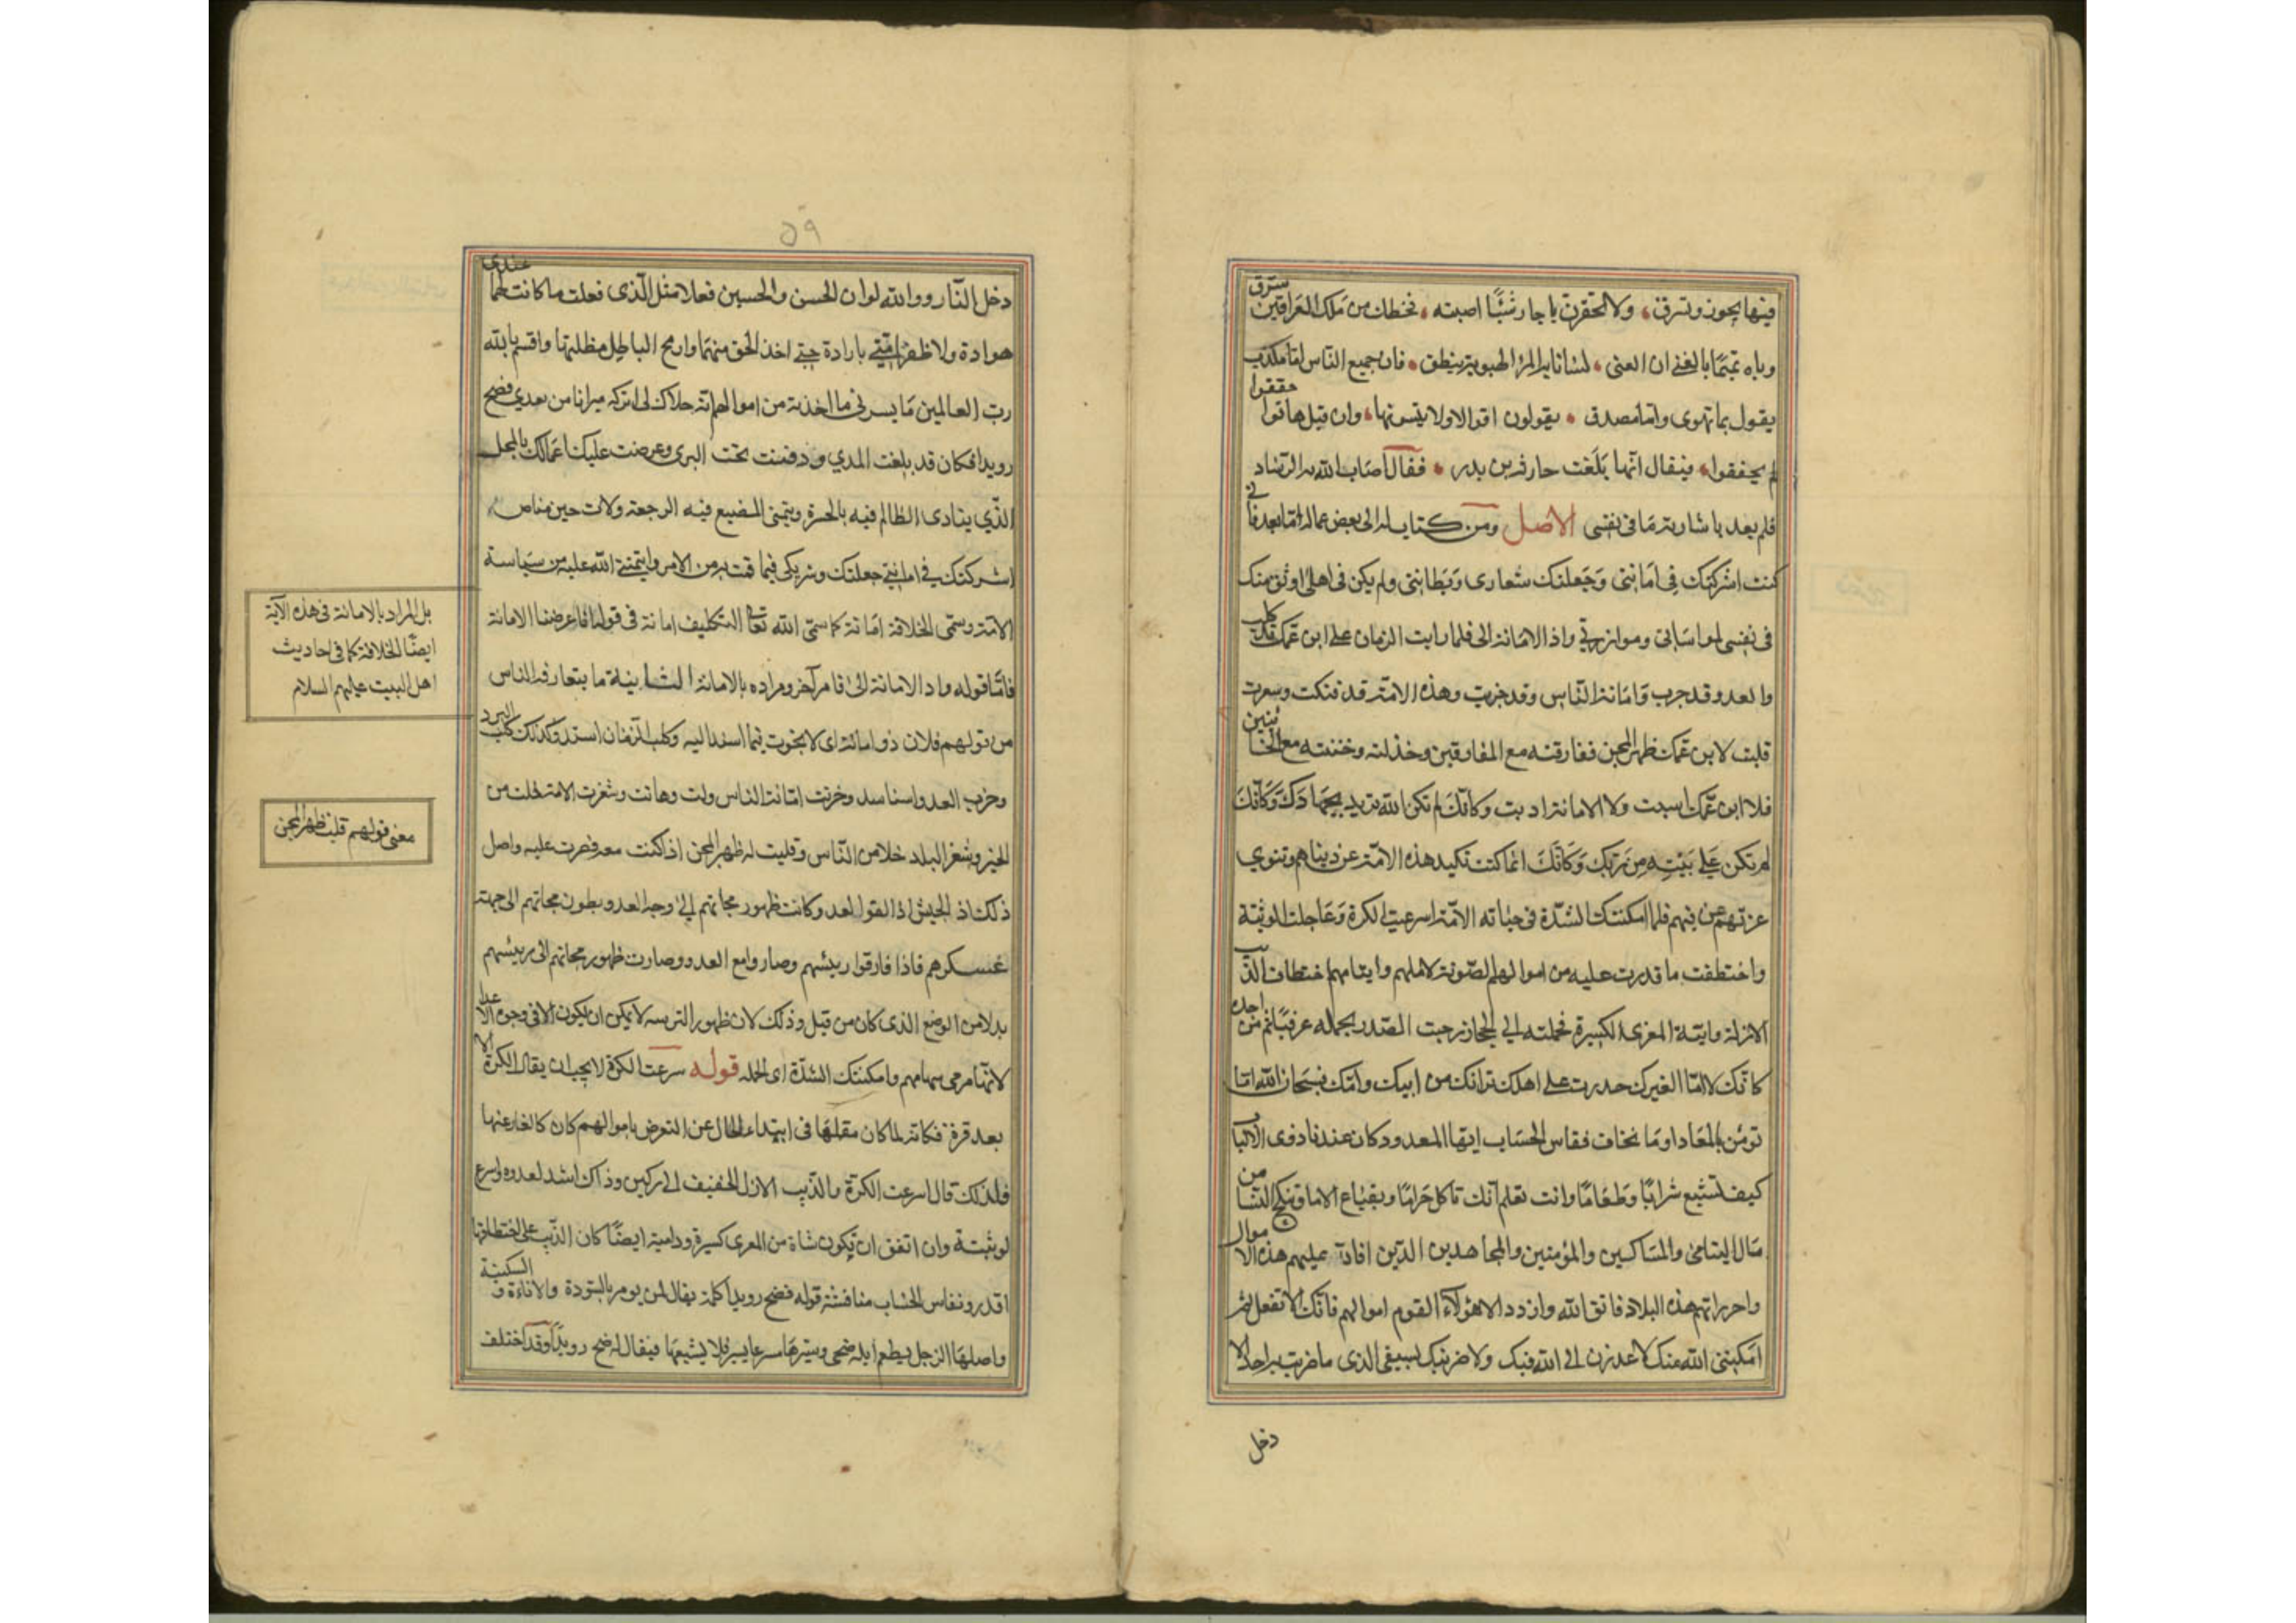 فيها يجون وتسرق ولا تحقرن يا جار شيئا اصبته فخطك من ملك العراقين سرق
وباه تميما بالغنى ان الغنى لسانا به المرؤ الهيوبة ينطق فان جميع الناس اما مكذب
يقول بما تهوى واما مصدق يقولون اقوالا ولا يتبينونها وان قيل هاتوا حققوا
لم يحققوا فيقال انها بلغت حارثة بن بدر فقال اصاب الله به الرشاد
فلم يعد باشارته ما في نفسى الاصل ومن كتاب له الى بعض عماله اما بعد فانى
كنت اشركتك فى امانتى وجعلتك شعارى وبطانتى ولم يكن فى اهلى اوثق منك
فى نفسى لمواساتى وموازرتى واد الامانة الى فلما رايت الزمان على ابن عمك قد كلب
والعدو قد حرب وامانة الناس وقد خزيت وهذه الامة قد فتكت وشغرت
قلبت لابن عمك ظهر المجن ففارقته مع المفارقين وخذلته وخنته مع الخائنين
فلا ابن عمك اسيت ولا الامانة اديت وكانك لم تكن الله تريد بجهادك وكانك
لم تكن على بينه من ربك وكانك انما كنت تكيد هذه الامة عن دنياهم وتنوي
غرتهم عن فيهم فلما امكنتك الشدة فى خيانه الامة اسرعت الكرة وعاجلت الوثبة
واختطفت ما قدرت عليه من اموالهم المصونة لاراملهم وايتامهم اختطاف الذيب
الازل دامية المعزى الكسيرة فحملته الى الحجاز رحيب الصدر بحمله غير متاثم من اخذه
كانك لا ابا لغيرك حدرت على اهلك تراثك من ابيك وامك فسبحان الله اما
تومن بالمعاد او ما تخاف نقاش الحساب ايها المعدود كان عندنا ذوى الالباب
كيف تسيغ شرابا وطعاما وانت تعلم انك تاكل حراما وتبتاع الاما وتنكح النسا من
مال اليتامى والمساكين والمؤمنين والمجاهدين الذين افاء عليهم هذه الاموال
واحرز بهم هذه البلاد فاتق الله واردد الى هؤلاء القوم اموالهم فانك ان لا تفعل ثم
امكننى الله منك لاعذرن الى الله فيك ولاضربنك بسيفى الذى ما ضربت به احدا الا
دخل
٥٩
دخل النار ووالله لو ان الحسن والحسين فعلا مثل الذى فعلت ما كانت لهما عندى
هوادة ولا ظفرا منى بارادة حتى اخذ الحق منهما وازيح الباطل مظلمتها واقسم بالله
رب العالمين ما يسرنى ما اخذته من اموالهم انه حلال لى اتركه ميراثا من بعدي فضح
رويدا فكان قد بلغت المدي ودفنت تحت الثرى وعرضت عليك اعمالك بالمحل
الذي ينادى الظالم فيه بالحسرة ويتمنى المضيع فيه الرجعة ولات حين مناص
اشركتك فى امانتى جعلتك شريكى فيما قمت به من الامر وايتمننى الله عليه من سياسة
الامة وسمى الخلافة امانة كما سمى الله تعالى التكليف امانة فى قوله انا عرضنا الامانة
فاما قوله واد الامانة الى فامر آخر ومراده بالامانة الثانية ما يتعارفه الناس
من قولهم فلان ذو امانة اى لا يخون فيما اسند اليه وكلب الزمان اشتد وكذلك كلب البرد
وحرب العدو استاسد وخزيت امانة الناس ذلت وهانت وشغرت الامة خلت من
الخير وشغر البلد خلا من الناس وقلبت له ظهر المجن اذا كنت معه فصرت عليه واصل
ذلك اذ الجيش اذا لقوا العدو وكانت ظهور مجانهم الى وجه العدو وبطون مجانهم الى جهة
عسكرهم فاذا فارقوا رئيسهم وصاروا مع العدو وصارت ظهور مجانهم الى رئيسهم
بدلا من الوضع الذى كان من قبل وذلك لان ظهور الترسه لا يمكن ان يكون الا فى وجوه الاعدا
لانها مرمى سهامهم وامكنتك الشدة اى الحمله قوله اسرعت الكرة لا يجب ان يقال الكرة الا
بعد فرة فكانه لما كان مقلعا فى ابتداء الحال عن التعرض باموالهم كان كالفار عنها
فلذلك قال اسرعت الكرة والذيب الازل الخفيف الوركين وذاك اشد لعدوه واسرع
لوثبته وان اتفق ان يكون شاة من المعزى كسيرة ودامية ايضا كان الذيب على اختطافها
اقدر ونقاش الحساب مناقشته قوله فضح رويدا كلمة يقال لمن يومر بالتودة والاناءة والسكينة
واصلها الرجل يطعم ابله ضحى ويسيرها مسرعا يسير فلا يشبعها فيقال له ضح رويدا وقد اختلف
بل المراد بالامانة فى هذه الآية
ايضا الخلافة كما فى احاديث
اهل البيت عليهم السلام
معنى قولهم قلبت ظهر المجن